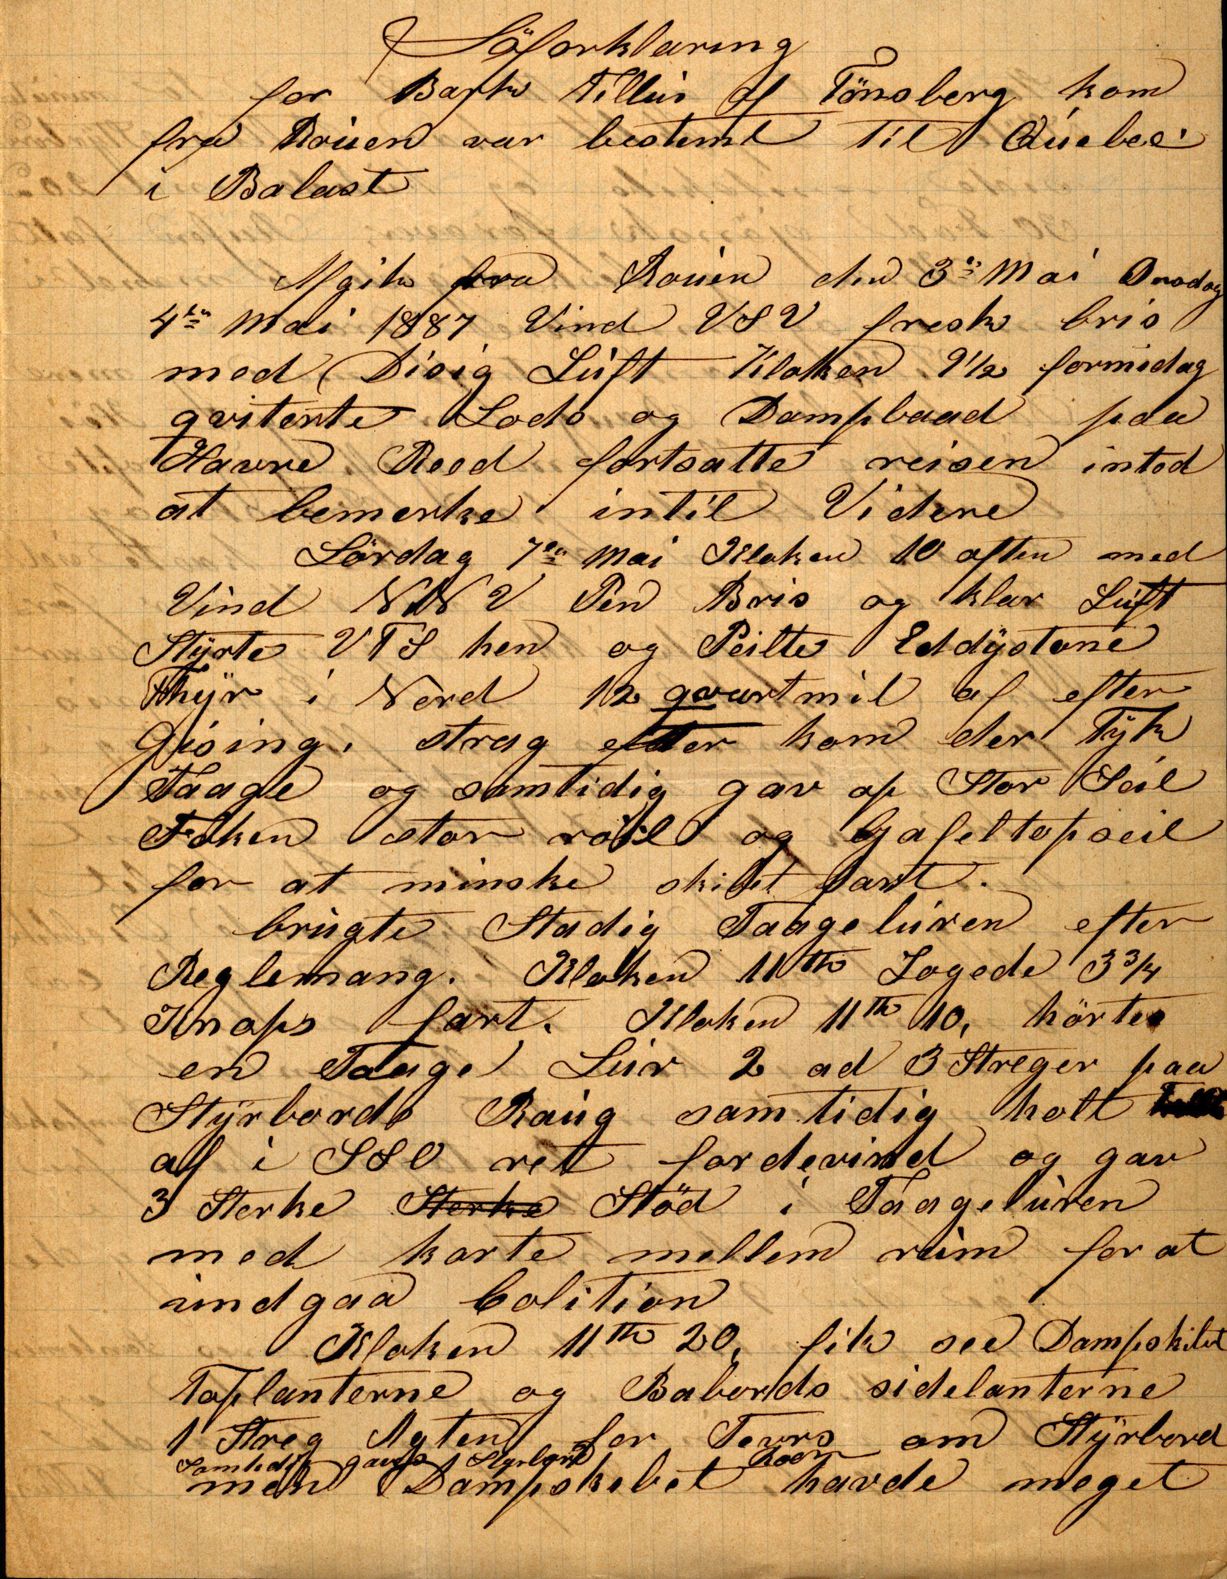 Söforklaring
for Bark Tillid af Tönsberg kom
fra Rouen var bestemt til Quebec
i Balast
Afgik fra Rouen den 3de Mai Onsdag
4de Mai 1887 Vind VSV fresk bris
med Disig Luft Kloken 9 1/2 formidag
qviterte Lods og Dampbaad paa
Havre Reed fortsatte reisen intod
at bemerke intil Videre
Lördag 7de Mai Kloken 10 aften med
Vind NNV Pen Bris og klar Luft
Styrte VTS hen og Peilte Eddystone
Fhyr i Nord 12 qvartmil af efter
Gising. strag efter kom der Tyk
Taage og samtidig gav op Stor Seil
Foken stor röil og Gafeltopseil
for at minske skibet fart.
brugte Stadig Taageluren efter
Reglemang. Kloken 11th Logede 3 3/4
Knops fart. Kloken 11th 10, hörte
en Taage Lur 2 ad 3 Streger paa
Styrbords Baug samtidig holt
af i SSO ret fordevind og gav
3 Sterke Sterke Stöd i Taageluren
med korte mellem rum for at
undgaa Colition
Kloken 11th 20, fik see Dampskibet
Toplanterne og Babords sidelanterne
1 Streg Agten for Tvers om Styrbord
Samtidig gav Styrbord Roer
men Dampskebet havde meget